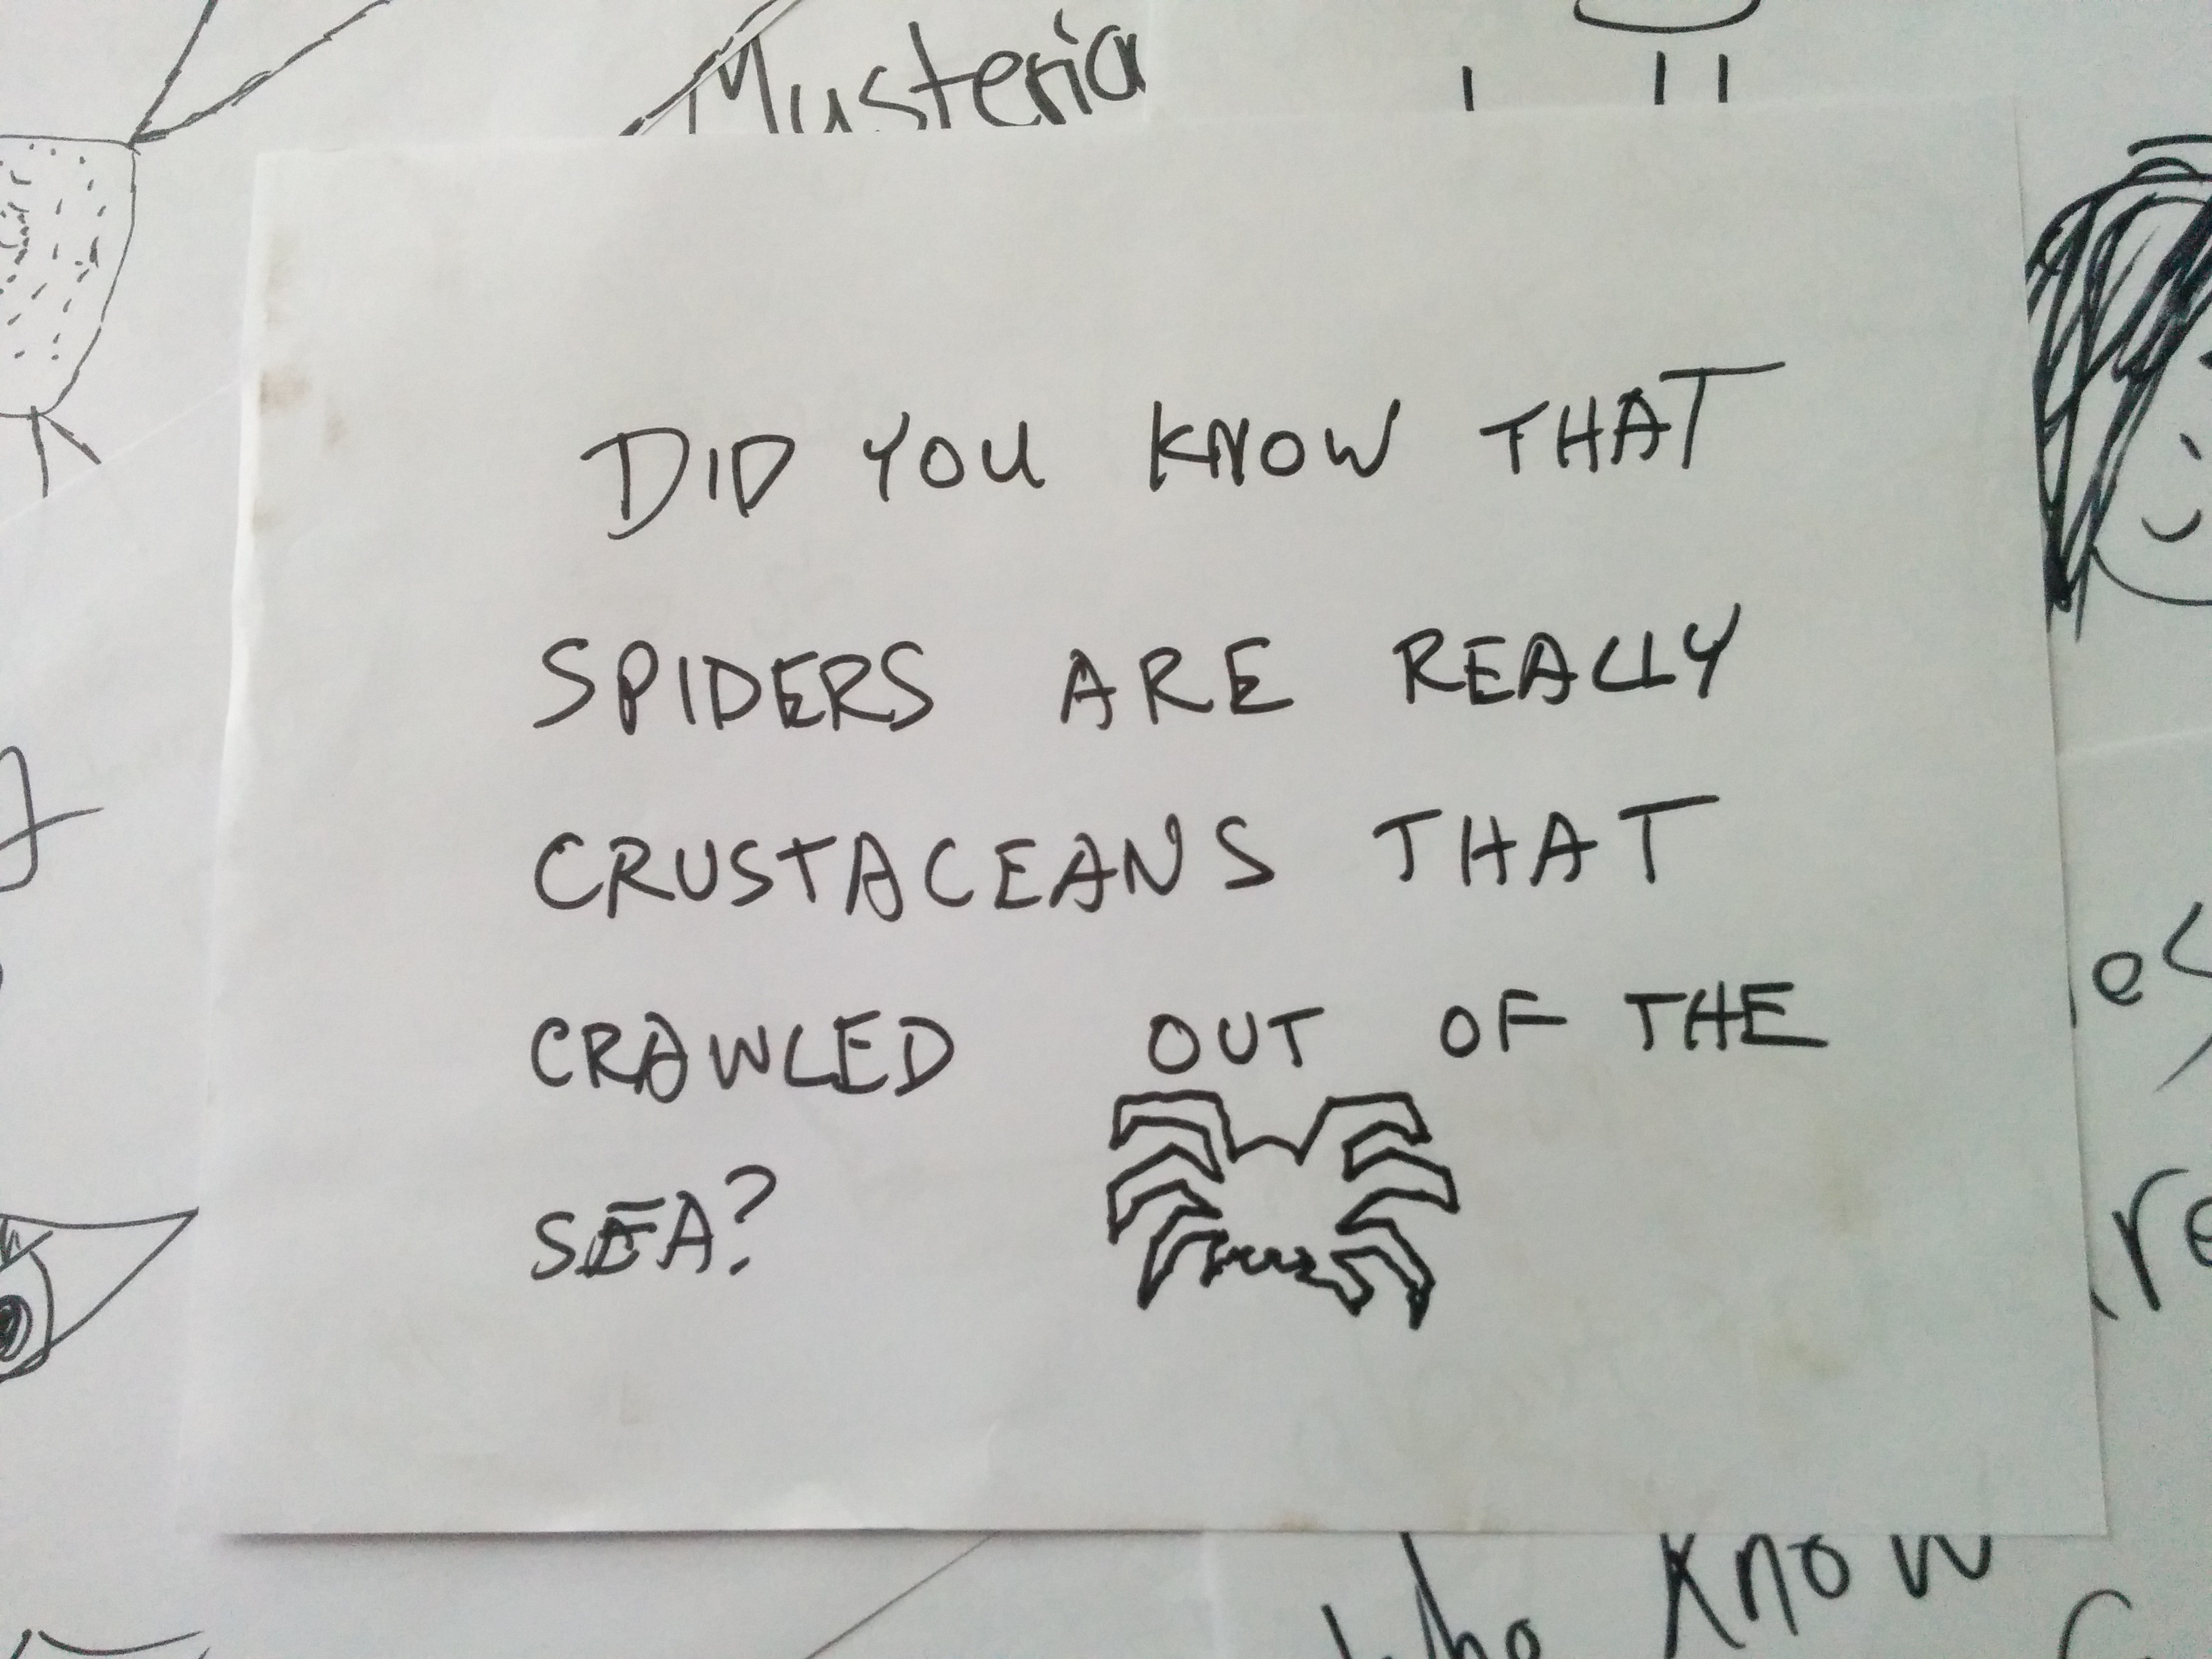 Mysteria
DID YOU KNOW THAT
SPIDERS ARE REALLY
CRUSTACEANS THAT
CRAWLED OUT OF THE
SEA?
who know